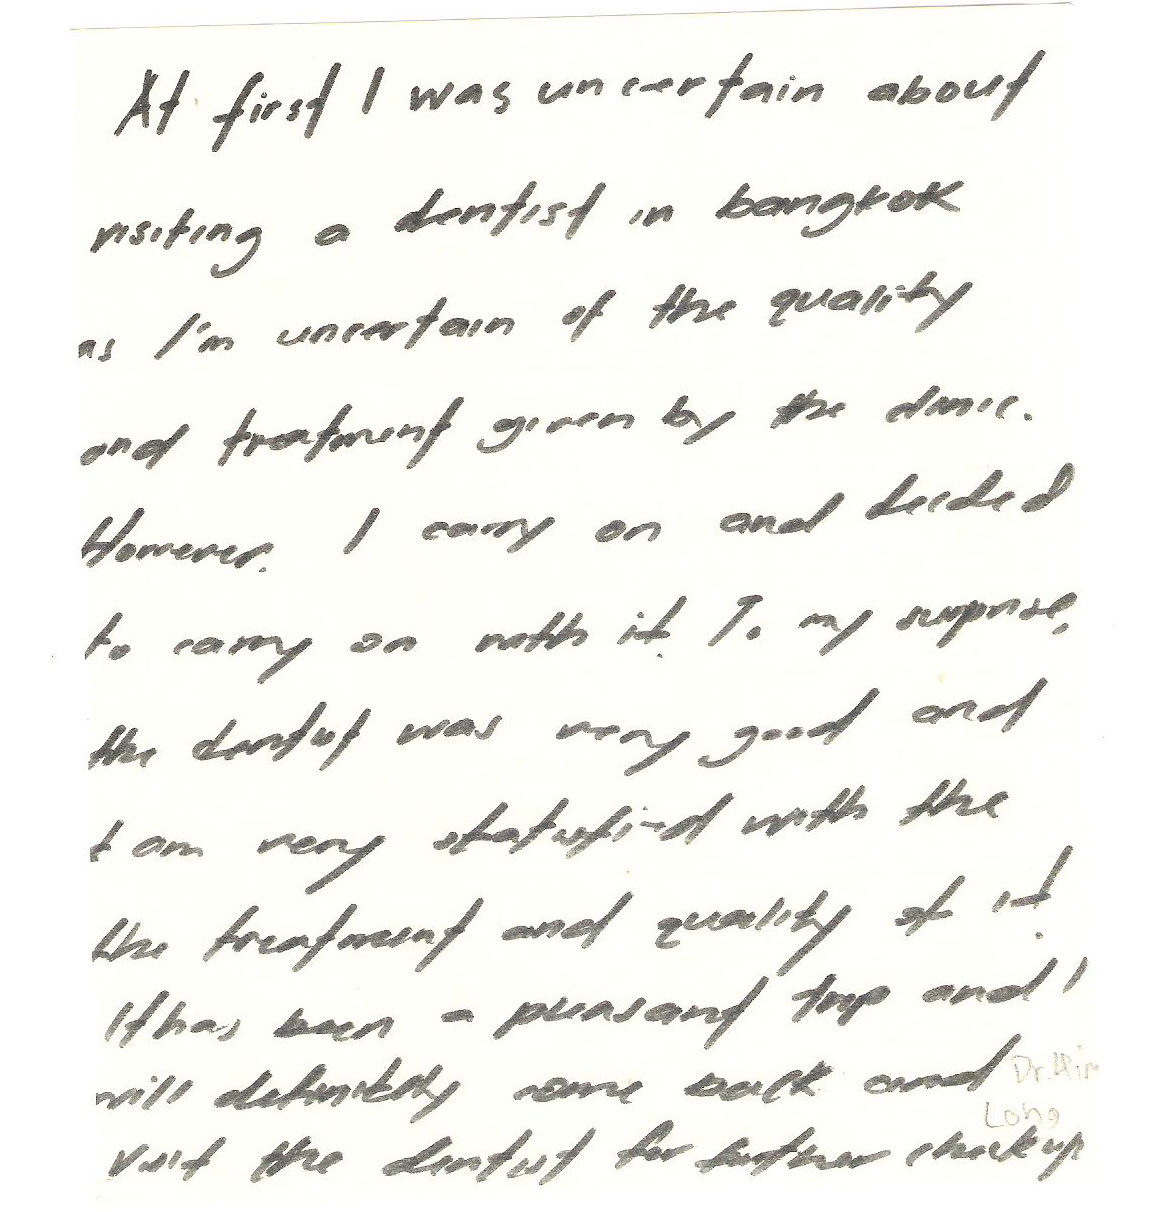 At first I was uncertain about
visiting a dentist in bangkok
as I'm uncertain of the quality
and treatment given by the clinic.
However, I carry on and decided
to carry on with it. To my surprise,
the dentist was very good and
I am very statisfied with the
the treatment and quality of it.
It has been a pleasant trip and I
will definitely come back and
visit the dentist for further check up
Dr.